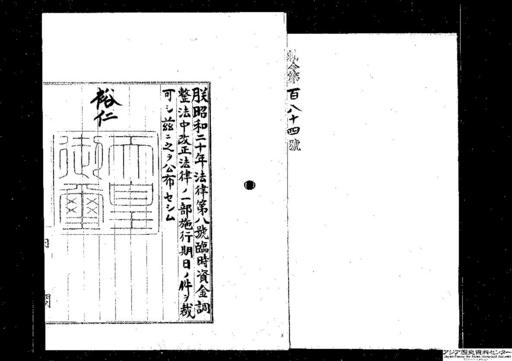 勅令第百八十四號
朕昭和二十年法律第八號臨時資金調
整法中改正法律ノ一部施行期日ノ件ヲ裁
可シ茲ニ之ヲ公布セシム
裕仁
天皇
御璽
内閣
アジア歴史資料センター